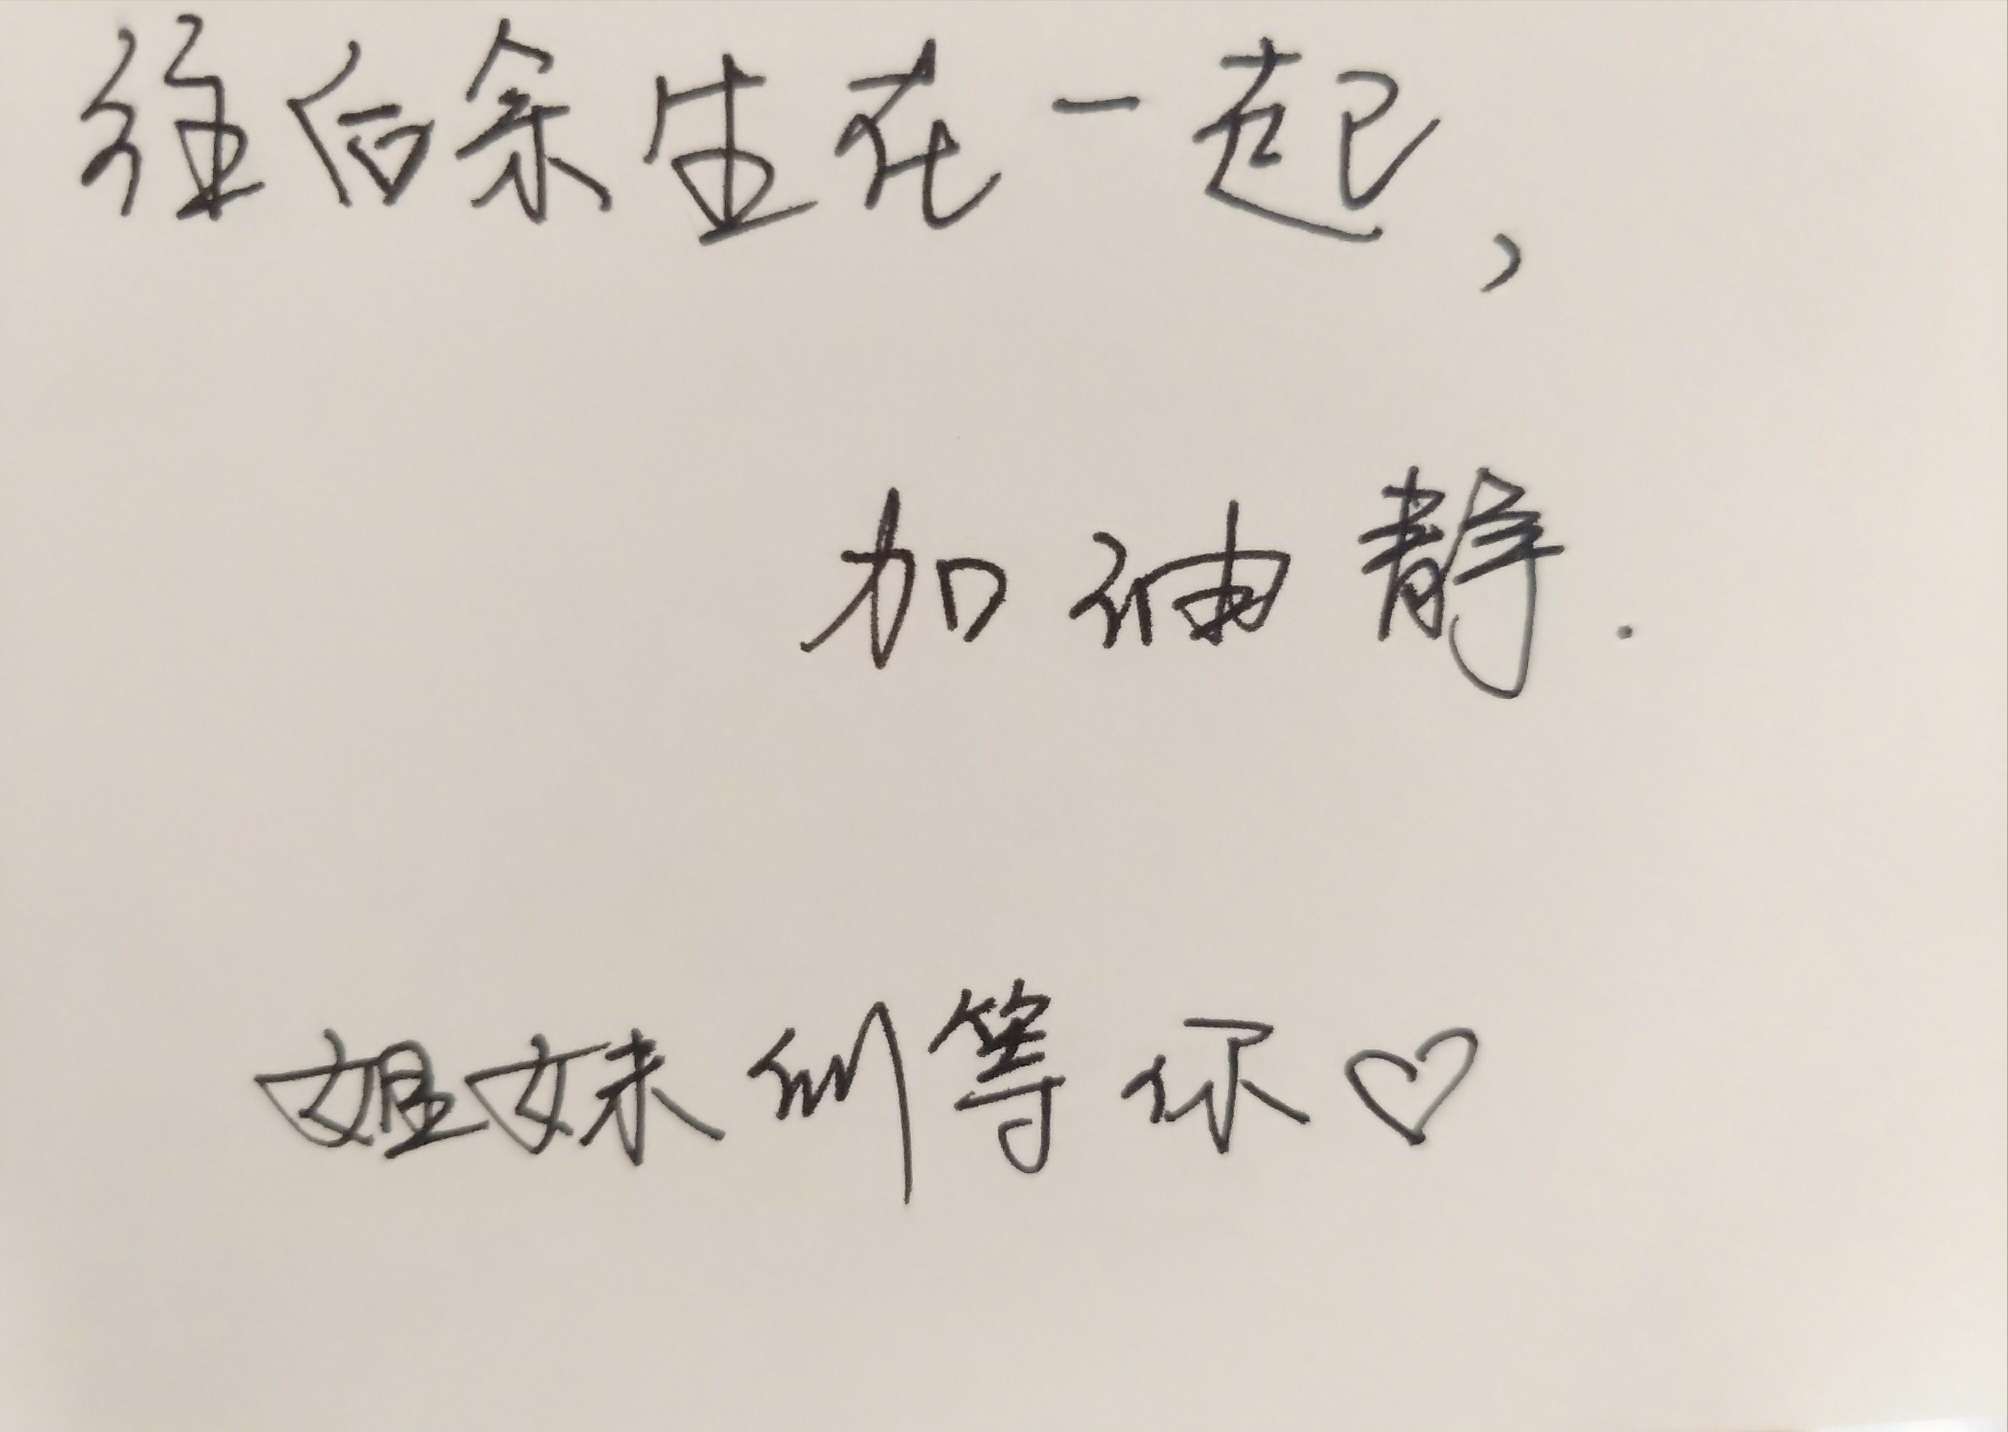 往后余生在一起，
加油静.
姐妹们等你♡